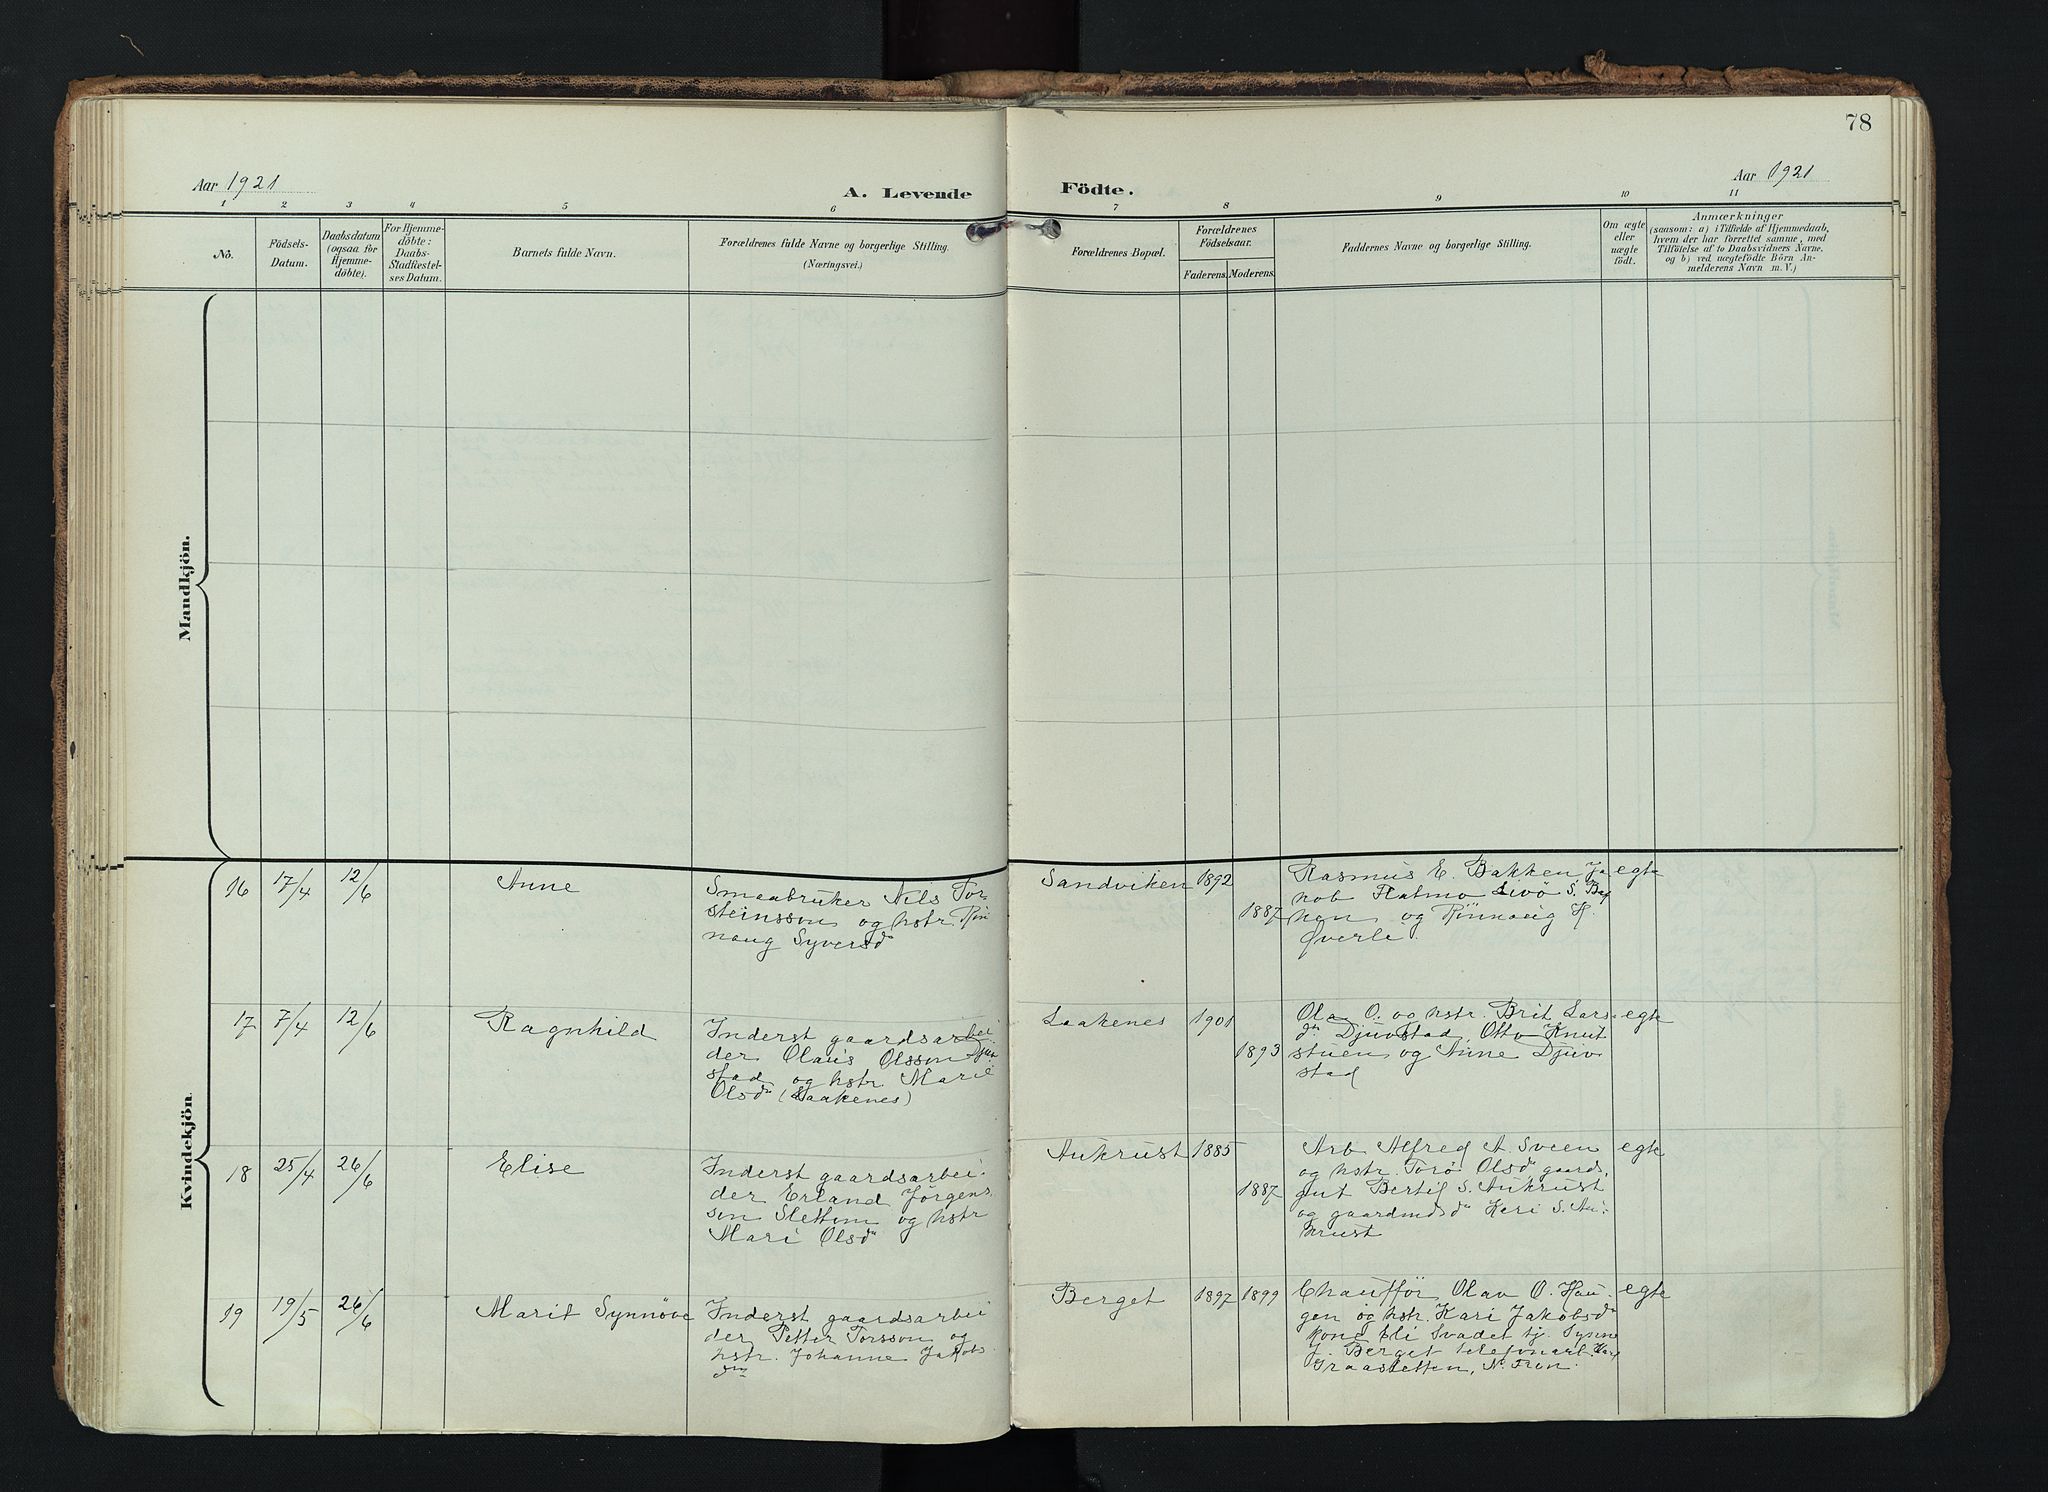 78
Aar 1921
A. Levende Födte.
Aar 1921
1 2 3 4 5 6 7 8 9 10 11
Nö.
Födsels-
Datum.
Daabsdatum
(ogsaa for
Hjemme-
döbte).
For Hjemme-
döbte:
Daabs-
Stadfæstel-
ses Datum.
Barnets fulde Navn.
Forældrenes fulde Navne og borgerlige Stilling.
(Næringsvei.)
Forældrenes Bopæl.
Forældrenes
Födselsaar.
Faderens. Moderens.
Faddernes Navne og borgerlige Stilling.
Om ægte
eller
uægte
födt.
Anmærkninger
(saasom: a) i Tilfælde af Hjemmedaab,
hvem der har forrettet samme, med
Tilföielse af to Daabsvidners Navne.
og b) ved uægtefödte Börn An-
melderens Navn m. V.)
Mandkjön.
Kvindekjön.
16 17/4 12/6 Anne
Smaabruker Nils Tor-
steinsson og hstr. Røn
naug Syversdr
Sandviken 1892 1887
Rasmus E. Bakken Ja
kob Flatmo Livö S. Bak
ken og Rönnaug H.
Øverli.
egte
17 7/4 12/6 Ragnhild
Inderst gaardsarbei
der Olaus Olsson Djuv
stad og hstr. Marie
Olsdr (Laakenes)
Laakenes 1901 1893
Ola O. og hstr. Brit Lars
dr Djuvstad, Otto Knut
stuen og Anne Djuv
stad
egte
18 25/4 26/6 Elise
Inderst gaardsarbei-
der Erland Jørgens
son Slettom og hstr
Mari Olsdr
Aukrust 1885 1887
Arb Alfred A. Sveen
og hstr. Torö Olsdr gaards
gut Bertil S. Aukrust
og gaardmdsdr Kari S. Au-
krust
egte
19 19/5 26/6 Marit Synnøve
Inderst gaardsarbei
der Petter Torsson og
hstr. Johanne Jakobs
dr
Berget 1897 1899
Chauffør Olav O. Hau
gen og hstr. Kari Jakobsdr
kone Eli Svadet tj. Synne
J. Berget telefonarb.
Graasletten, N. Fron.
egte